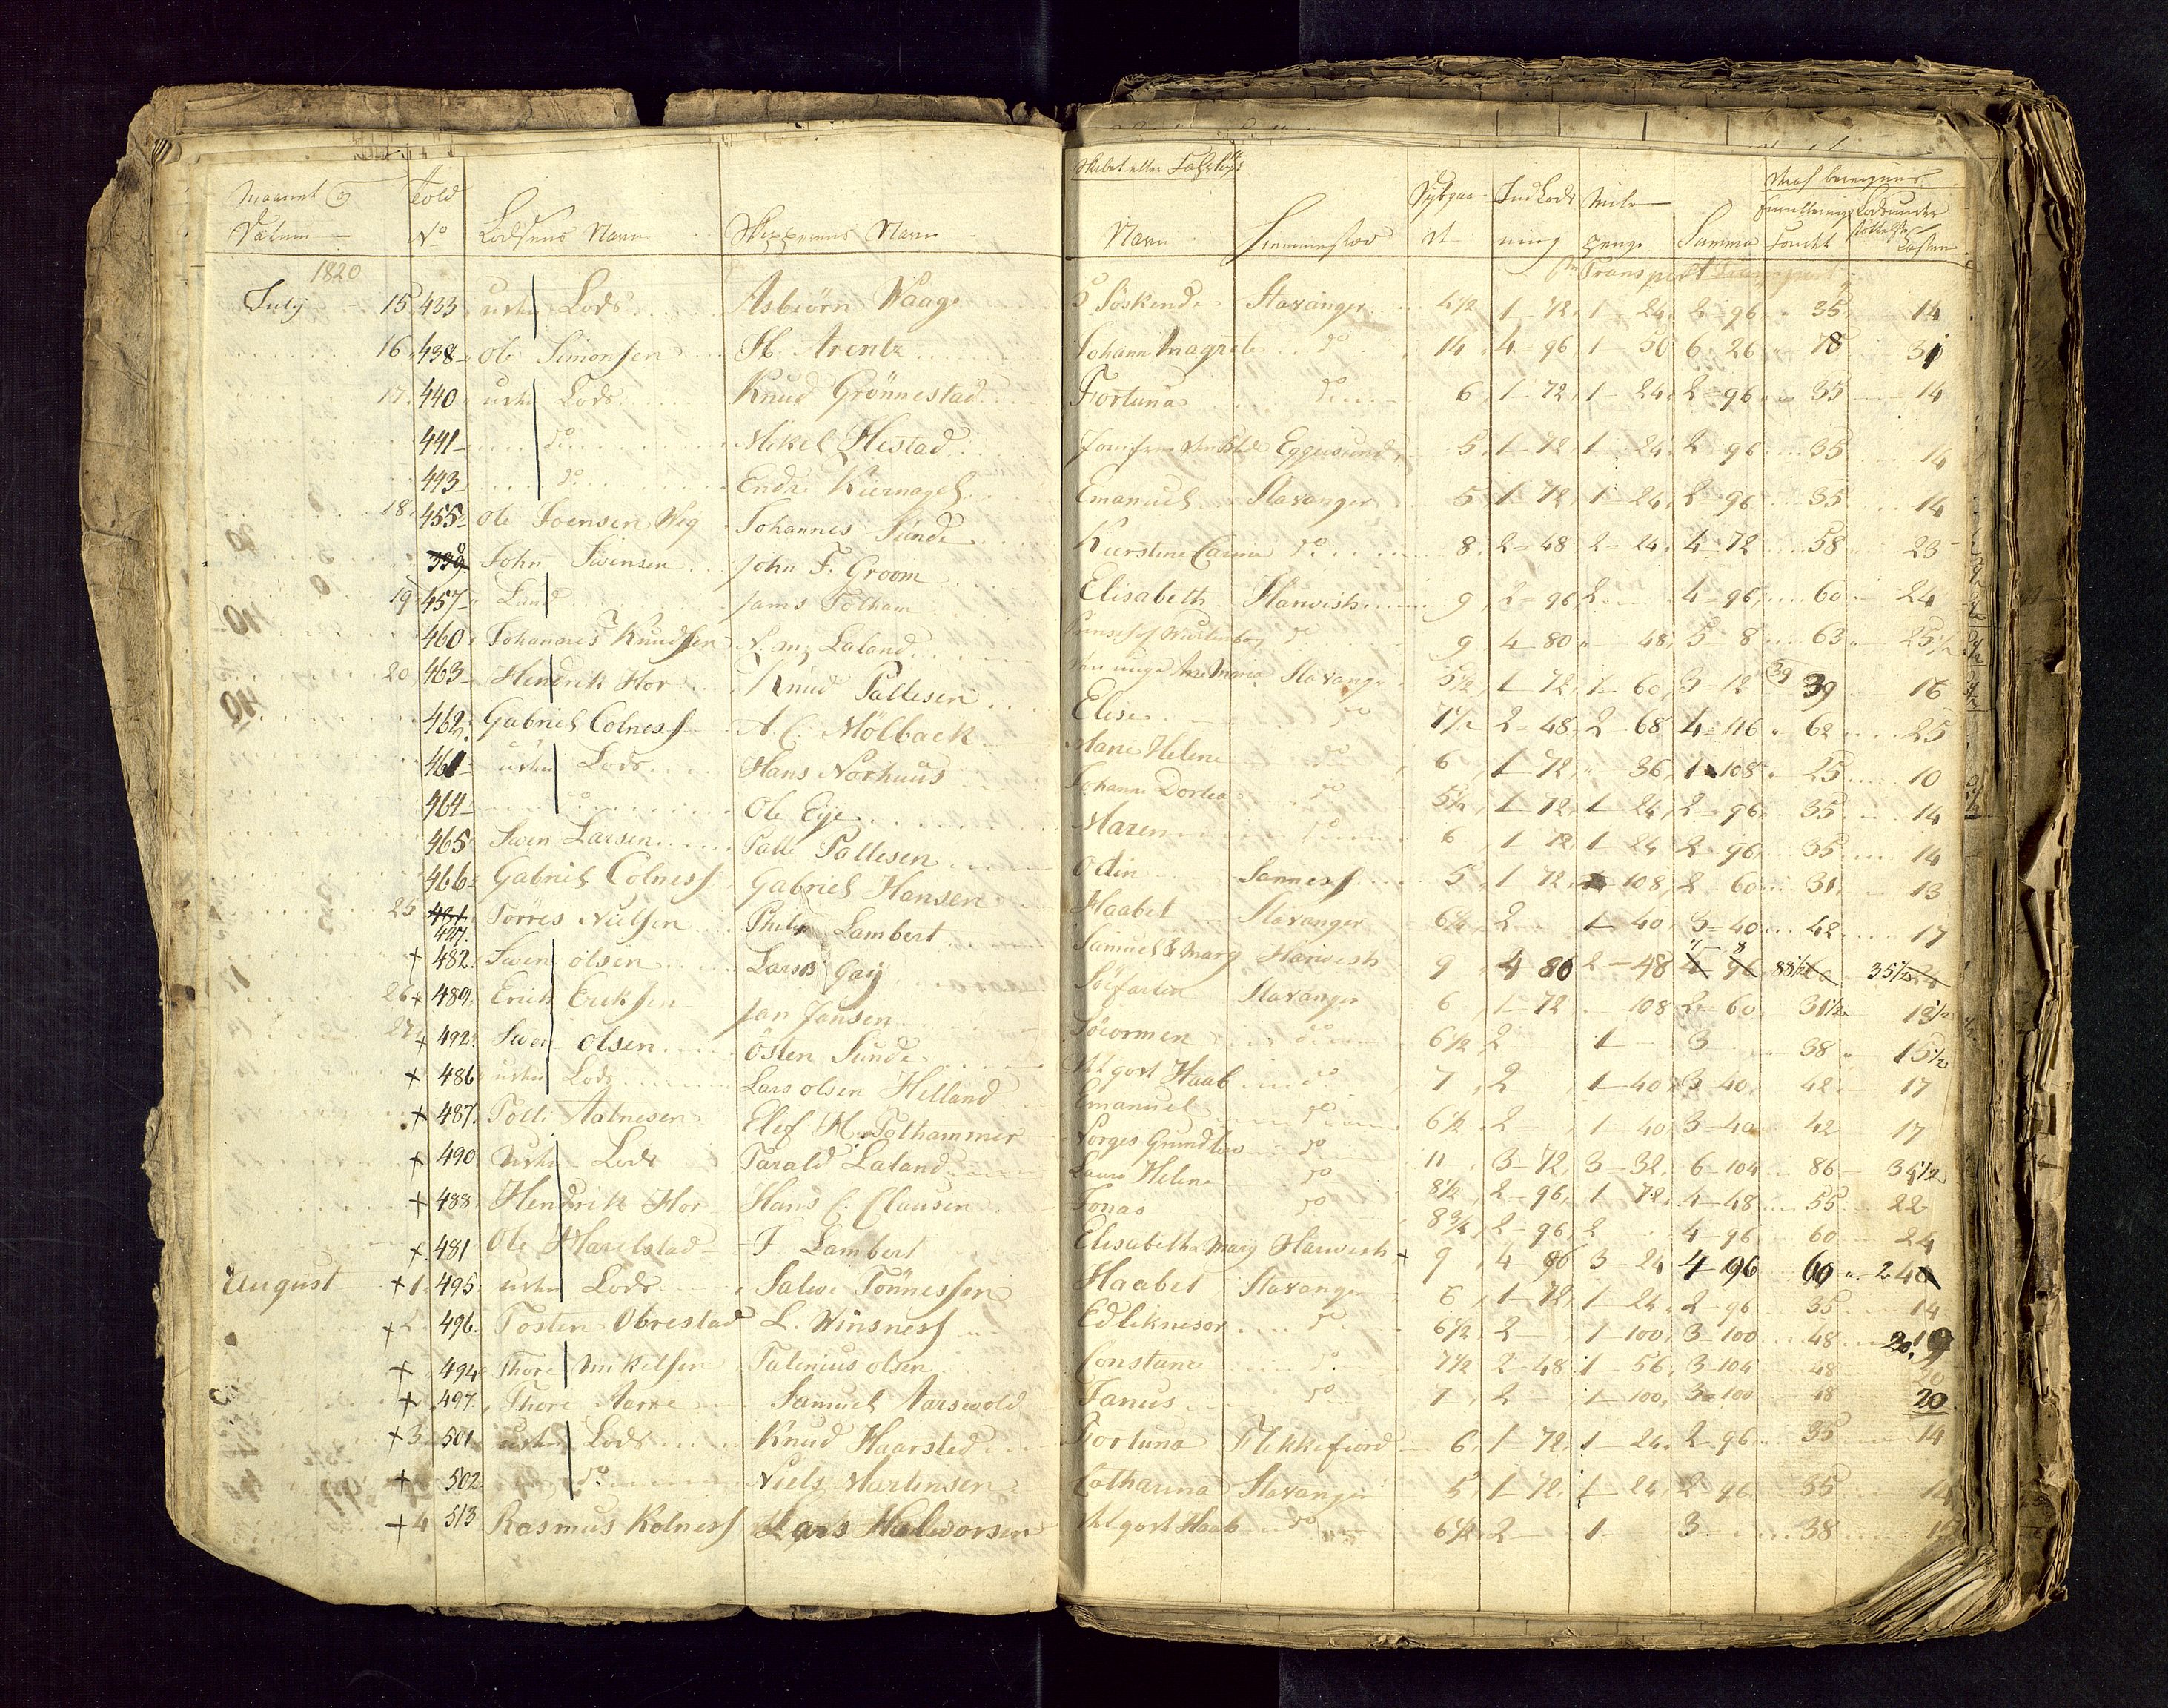 Maanet og Datum Told No Lodsens Navn Skipperens Navn
1820
July 15 433 Lods Asbiörn Waage
16 438 Ole Simonsen H. Arentz
17 440 Lods Knud Grönnestad
441 do Mikel Hestad
443 do Endre Kiernagel
18 455 Ole Joensen Wig Johannes Sunde
John Swensen John F. Groom
19 457 Lund Jams Tolham
460 Johannes Knudsen Laland
20 463 Hendrik Hor Knud Pallesen
462 Gabriel Colness A. C. Mölback
461 Lods Hans Norhuus
464 do Ole Eye
465 Swen Larsen Palle Pallesen
466 Gabriel Colness Gabriel Hansen
25 481 Törres Nielsen Lambert
477
+ 482 Swen olsen Lars Gaÿ
26 + 489 Erick Ericksen Jan Jansen
27 + 492 Swen Olsen Östen Sunde
+ 486 Lods Lars olsen Helland
+ 487 Aalnesen Elef H. Tolhammer
+ 490 Lods Tarald Laland
+ 488 Hendrik Hor Hans C. Clausen
+ 481 Ole Harelstad Lambert
August + 1 495 Lods Salve Tönnessen
+ 2 496 Tosten Obrestad L. Winsness
+ 494 Thore Mikelsen Talenius olsen
+ 497 Thore Aarre Samuel Aarswold
+ 3 501 Lods Knud Haarsted
+ 502 do Niels Martinsen
+ 4 513 Rasmus Kolness Lars Halworsen
Skibet eller
Navn Hiemmestæd Summa
Transport
5 Söskende Stavanger 4 1/2 1 72 1 24 2 96 35 14
Johann Magrete do 14 4 96 1 50 6 26 78 31
Fortuna do 6 1 72 1 24 2 96 35 14
Eggersund 5 1 72 1 24 2 96 35 14
Emanuel Stavanger 5 1 72 1 24 2 96 35 14
Kierstine Carine do 8 2 48 2 24 4 72 58 23
Elisabeth Harwish 9 2 96 2 4 96 60 24
do 9 4 80 48 5 8 63 25 1/2
Den unge Ane Maria Stavanger 5 1/2 1 72 1 60 3 12 39 39 16
Elise do 7 1/2 2 48 2 68 4 116 62 25
Mari Helene do 6 1 72 36 1 108 25 10
Johanne Dortea do 5 1/2 1 72 1 24 2 96 35 14
Maren do 6 1 72 1 24 2 96 35 14
Odin Sanness 5 1 72 108 2 60 31 13
Haabet Stavanger 6 1/2 2 1 40 3 40 42 17
Samuel & Marg Harwish 9 4 80 2 48 7 8 88 1/2 35 1/2
Söefarten Stavanger 6 1 72 108 2 60 31 1/2 13 1/2
Söeormen do 6 1/2 2 1 3 38 15 1/2
Haab do 7 2 1 40 3 40 42 17
Emanuel do 6 1/2 2 1 40 3 40 42 17
Norges Grundlov do 11 3 72 3 32 6 104 86 34 1/2
Laura Helene do 8 1/2 2 96 1 72 4 48 55 22
Jonas do 8 3/4 2 96 2 4 96 60 24
Elisabeth Marg Harwish + 9 4 80 3 24 4 96 60 24
Haabet Stavanger 6 1 72 1 24 2 96 35 14
do 6 1/2 2 1 100 3 100 48 20
Constance do 7 1/2 2 48 1 56 3 104 48 20
Janus do 7 2 1 100 3 100 48 20
Fortuna Flekkefiord 6 1 72 1 24 2 96 35 14
Catharina Stavanger 5 1 72 1 24 2 96 35 14
Haab do 6 1/2 2 1 3 38 15